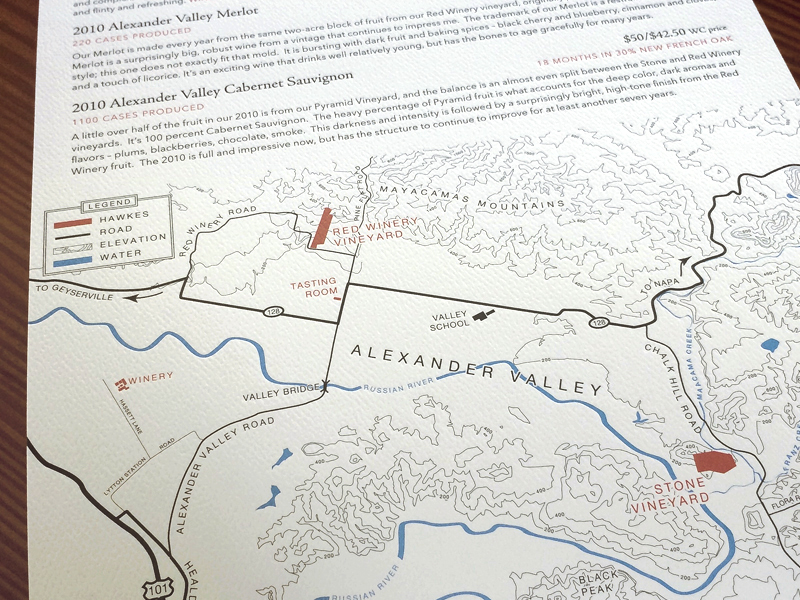 and flinty and refreshing.
2010 Alexander Valley Merlot
220 CASES PRODUCED
Our Merlot is made every year from the same two-acre block of fruit from our Red Winery vineyard,
Merlot is a surprisingly big, robust wine from a vintage that continues to impress me. The trademark of our Merlot is a
style; this one does not exactly fit that mold. It is bursting with dark fruit and baking spices - black cherry and blueberry, cinnamon and
and a touch of licorice. It's an exciting wine that drinks well relatively young, but has the bones to age gracefully for many years.
$50/$42.50 WC price
2010 Alexander Valley Cabernet Sauvignon
18 MONTHS IN 30% NEW FRENCH OAK
1100 CASES PRODUCED
A little over half of the fruit in our 2010 is from our Pyramid Vineyard, and the balance is an almost even split between the Stone and Red Winery
vineyards. It's 100 percent Cabernet Sauvignon. The heavy percentage of Pyramid fruit is what accounts for the deep color, dark aromas and
flavors - plums, blackberries, chocolate, smoke. This darkness and intensity is followed by a surprisingly bright, high-tone finish from the Red
Winery fruit. The 2010 is full and impressive now, but has the structure to continue to improve for at least another seven years.
LEGEND
HAWKES
ROAD
ELEVATION
WATER
RED WINERY ROAD
PINE FLAT ROAD
MAYACAMAS MOUNTAINS
RED WINERY
VINEYARD
TO GEYSERVILLE
TASTING
ROOM
TO NAPA
128
VALLEY
SCHOOL
128
ALEXANDER VALLEY
CHALK HILL ROAD
MAACAMA CREEK
WINERY
VALLEY BRIDGE
RUSSIAN RIVER
HASSETT LANE
LYTTON STATION ROAD
ALEXANDER VALLEY ROAD
STONE
VINEYARD
200
400
400
400
200
101
HEALD
RUSSIAN RIVER
BLACK
PEAK